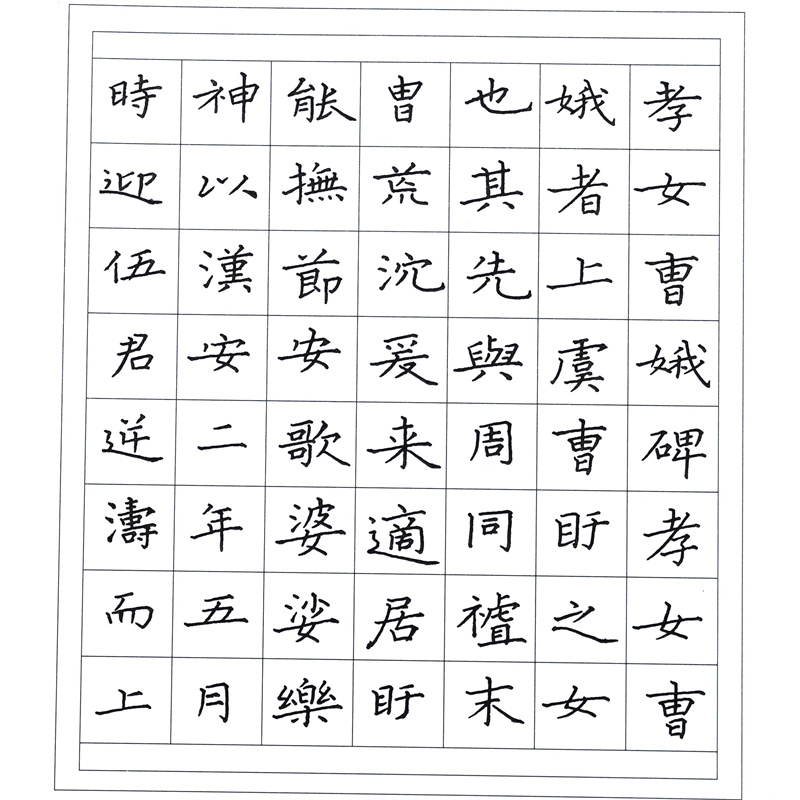 孝女曺娥碑孝女曺
娥者上虞曺盱之女
也其先與周同祖末
胄荒沉爰来適居盱
能撫節安歌婆娑樂
神以漢安二年五月
時迎伍君逆濤而上